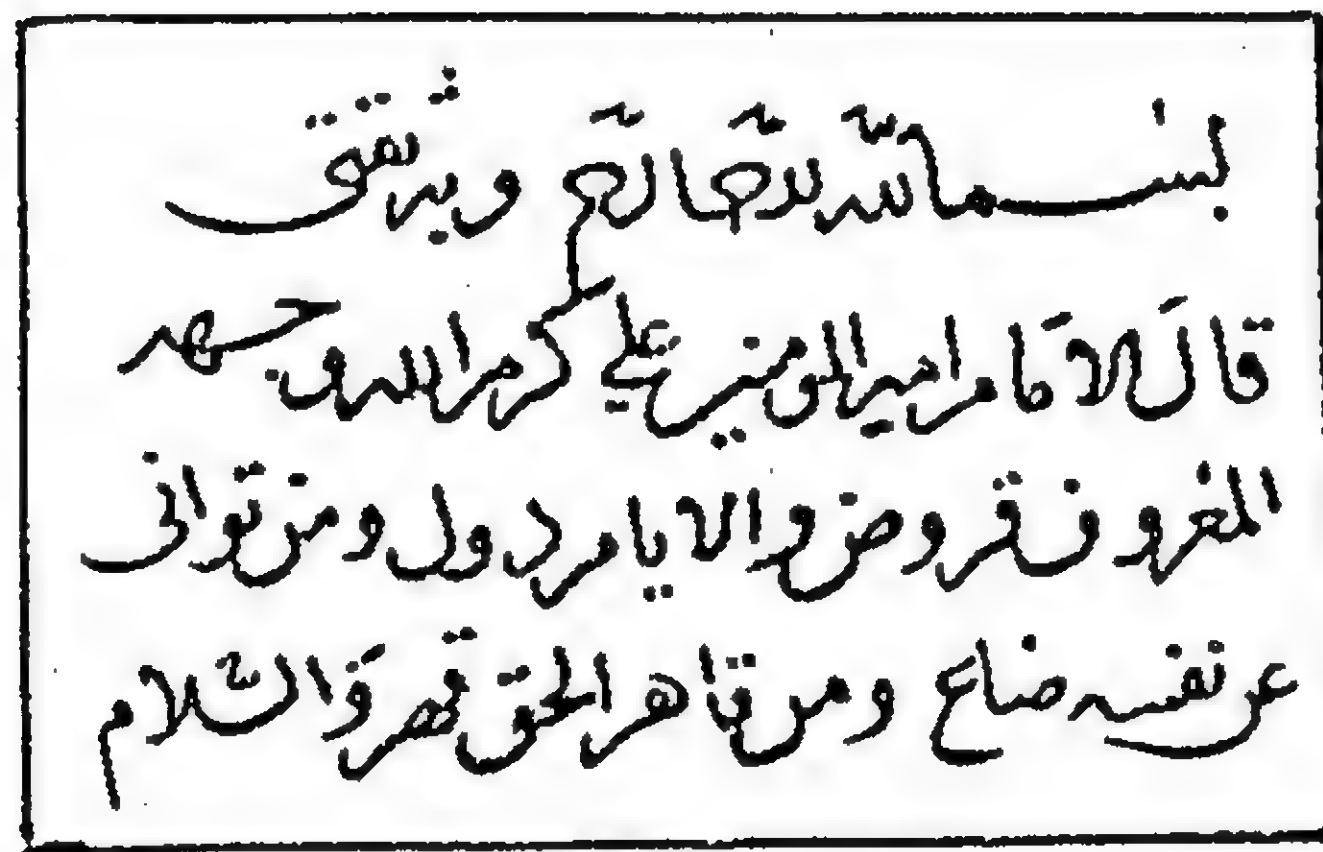 بسم الله تعالى وبه ثقتي
قال الامام امير المؤمنين علي كرم الله وجهه
الفرص قروض والايام دول ومن توانى
عن نفسه ضاع ومن قاهر الحق قهر والسلام